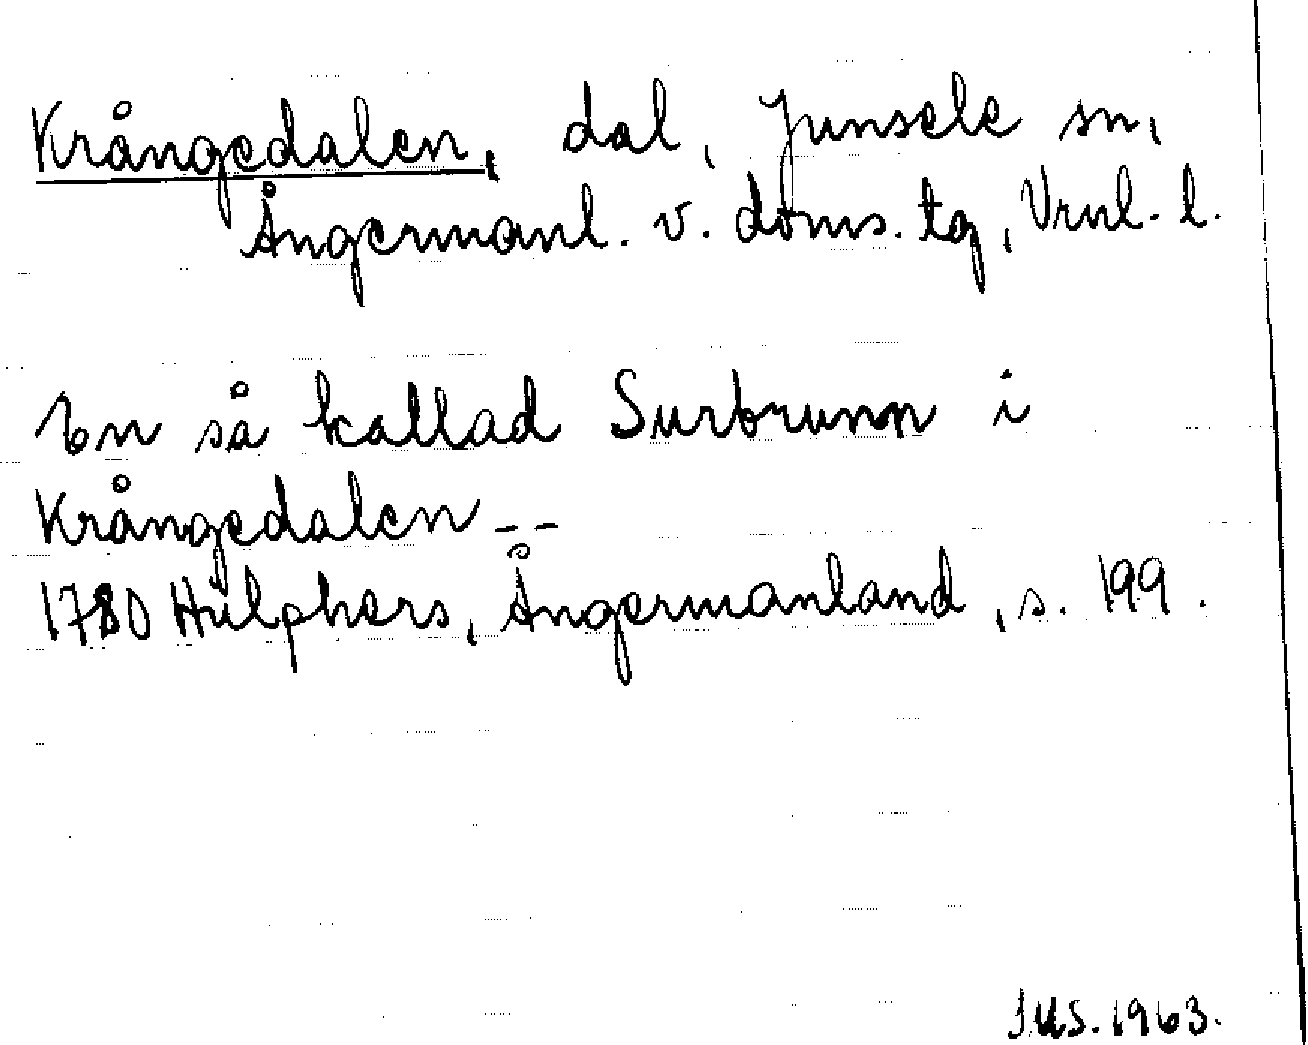 Krångedalen, dal, Junsele sn,
Ångermanl. v. doms. tg, Vrnl. l.
En så kallad Surbrunn i
Krångedalen --
1780 Hülphers, Ångermanland, s. 199.
JUS. 1963.